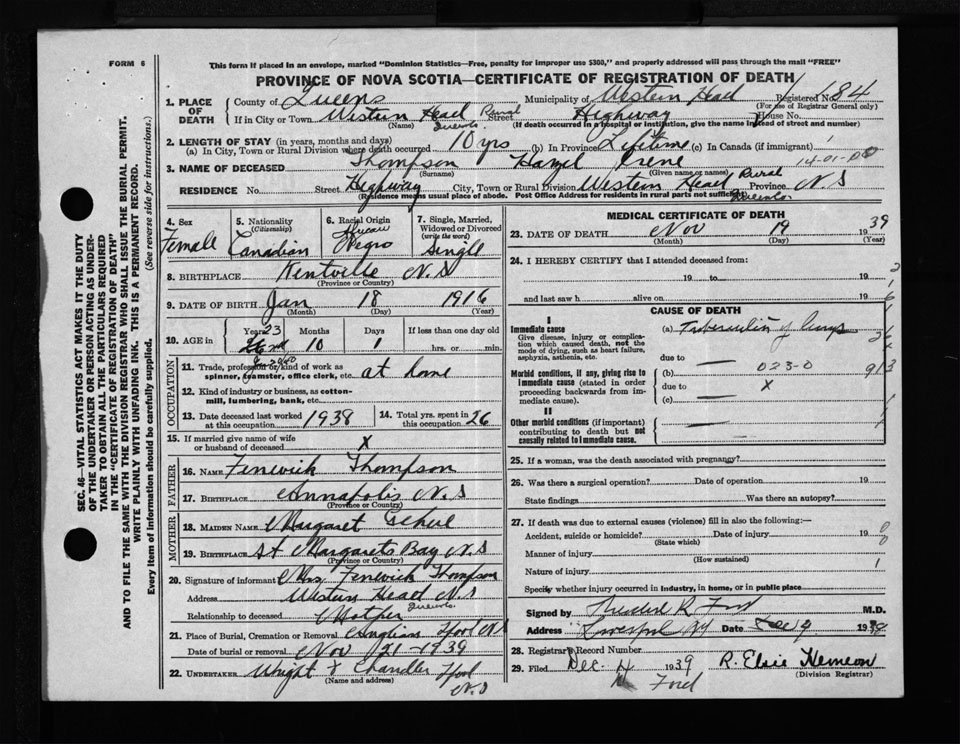 FORM 6
This form if placed in an envelope, marked "Dominion Statistics—Free, penalty for improper use $300," and properly addressed will pass through the mail "FREE"
PROVINCE OF NOVA SCOTIA—CERTIFICATE OF REGISTRATION OF DEATH
1. PLACE OF DEATH
County of Queens Municipality of Western Head Registered No. 184
(For use of Registrar General only)
If in City or Town Western Head Rural Street Highway House No.
(Name) Queens (If death occurred in a hospital or institution, give the name instead of street and number)
2. LENGTH OF STAY (in years, months and days)
(a) In City, Town or Rural Division where death occurred 10 yrs (b) In Province Lifetime (c) In Canada (if immigrant)
3. NAME OF DECEASED Thompson Hazel Irene 14-01-
(Surname) (Given name or names)
RESIDENCE No. Street Highway City, Town or Rural Division Western Head Rural Province N.S
(Residence means usual place of abode. Post Office Address for residents in rural parts not sufficient) Queens Co.
4. Sex Female
5. Nationality (Citizenship) Canadian
6. Racial Origin Negro
7. Single, Married, Widowed or Divorced (write the word) Single
8. BIRTHPLACE Kentville N.S
(Province or Country)
9. DATE OF BIRTH Jan 18 1916
(Month) (Day) (Year)
10. AGE in Years 23 Months 10 Days 1 If less than one day old hrs. or min.
OCCUPATION
11. Trade, profession or kind of work as spinner, teamster, office clerk, etc. at home
12. Kind of industry or business, as cotton-mill, lumbering, bank, etc.
13. Date deceased last worked at this occupation 1938
14. Total yrs. spent in this occupation 26
15. If married give name of wife or husband of deceased X
FATHER
16. NAME Fenwick Thompson
17. BIRTHPLACE Annapolis N.S
(Province or Country)
MOTHER
18. MAIDEN NAME Margaret
19. BIRTHPLACE St Margarets Bay N.S
(Province or Country)
20. Signature of informant Mrs Fenwick Thompson
Address Western Head N.S
Relationship to deceased Mother Queens Co.
21. Place of Burial, Cremation or Removal N.S
Date of burial or removal Nov 21-1939
22. UNDERTAKER Wright & Chandler
(Name and address) N.S
MEDICAL CERTIFICATE OF DEATH
23. DATE OF DEATH Nov 19 1939
(Month) (Day) (Year)
24. I HEREBY CERTIFY that I attended deceased from:
19 to 19
and last saw h alive on 19
CAUSE OF DEATH
I
Immediate cause
Give disease, injury or complication which caused death, not the mode of dying, such as heart failure, asphyxia, asthenia, etc.
(a) Tuberculosis of lungs
due to
Morbid conditions, if any, giving rise to immediate cause (stated in order proceeding backwards from immediate cause).
(b) — 023-0
due to X
(c) —
II
Other morbid conditions (if important) contributing to death but not causally related to immediate cause.
25. If a woman, was the death associated with pregnancy?
26. Was there a surgical operation? Date of operation 19
State findings Was there an autopsy?
27. If death was due to external causes (violence) fill in also the following:—
Accident, suicide or homicide? Date of injury 19
(State which)
Manner of injury
(How sustained)
Nature of injury
Specify whether injury occurred in industry, in home, or in public place
Signed by Ford M.D.
Address Liverpool NS Date Dec 9 19
28. Registrar's Record Number
29. Filed Dec. 4 1939 R. Elsie Hemeon
(Division Registrar)
Ford
SEC. 46—VITAL STATISTICS ACT MAKES IT THE DUTY OF THE UNDERTAKER OR PERSON ACTING AS UNDERTAKER TO OBTAIN ALL THE PARTICULARS REQUIRED IN THE "CERTIFICATE OF REGISTRATION OF DEATH" AND TO FILE THE SAME WITH THE DIVISION REGISTRAR WHO SHALL ISSUE THE BURIAL PERMIT.
WRITE PLAINLY WITH UNFADING INK. THIS IS A PERMANENT RECORD.
Every item of information should be carefully supplied. (See reverse side for instructions.)